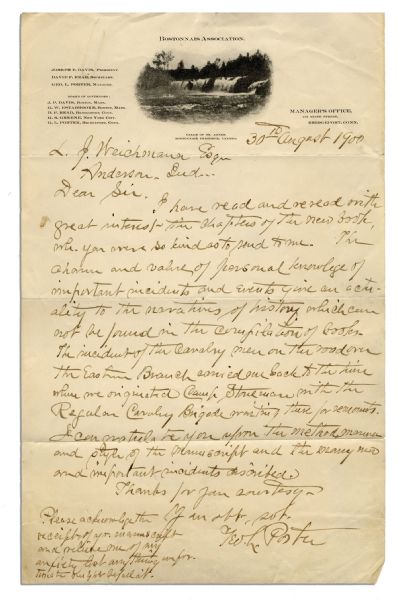 BOSTONNAIS ASSOCIATION.
JOSEPH P. DAVIS, PRESIDENT
DAVID F. READ, SECRETARY.
GEO. L. PORTER, MANAGER.
BOARD OF GOVERNORS:
J. P. DAVIS, BOSTON, MASS.
G. W. ESTABROOK, BOSTON, MASS.
D. F. READ, BRIDGEPORT, CONN.
G. S. GREENE, NEW YORK CITY.
G. L. PORTER, BRIDGEPORT, CONN.
MANAGER'S OFFICE,
BRIDGEPORT, CONN.
30th August 1900
L. J. Weichmann Esqr
Anderson. Ind.
Dear Sir.
I have read and reread with
great interest the chapters of the new book,
whh you were so kind as to send to me. The
charm and value of personal knowledge of
important incidents and events give an actu-
ality to the narratives of history which can
not be found in the compilation of books.
The incident of the Cavalry men on the road over
the Eastern Branch carried me back to the time
when we originated Camp Stoneman with the
Regular Cavalry Brigade waiting there for remounts.
I congratulate you upon the method manner
and style of the manuscript and the many new
and important incidents described.
Thanks for your courtesy.
Please acknowledge the
receipt of yr manuscript
and relieve me of any
anxiety lest anything unfor-
tunate
Yr ob svt.
Geo L. Porter